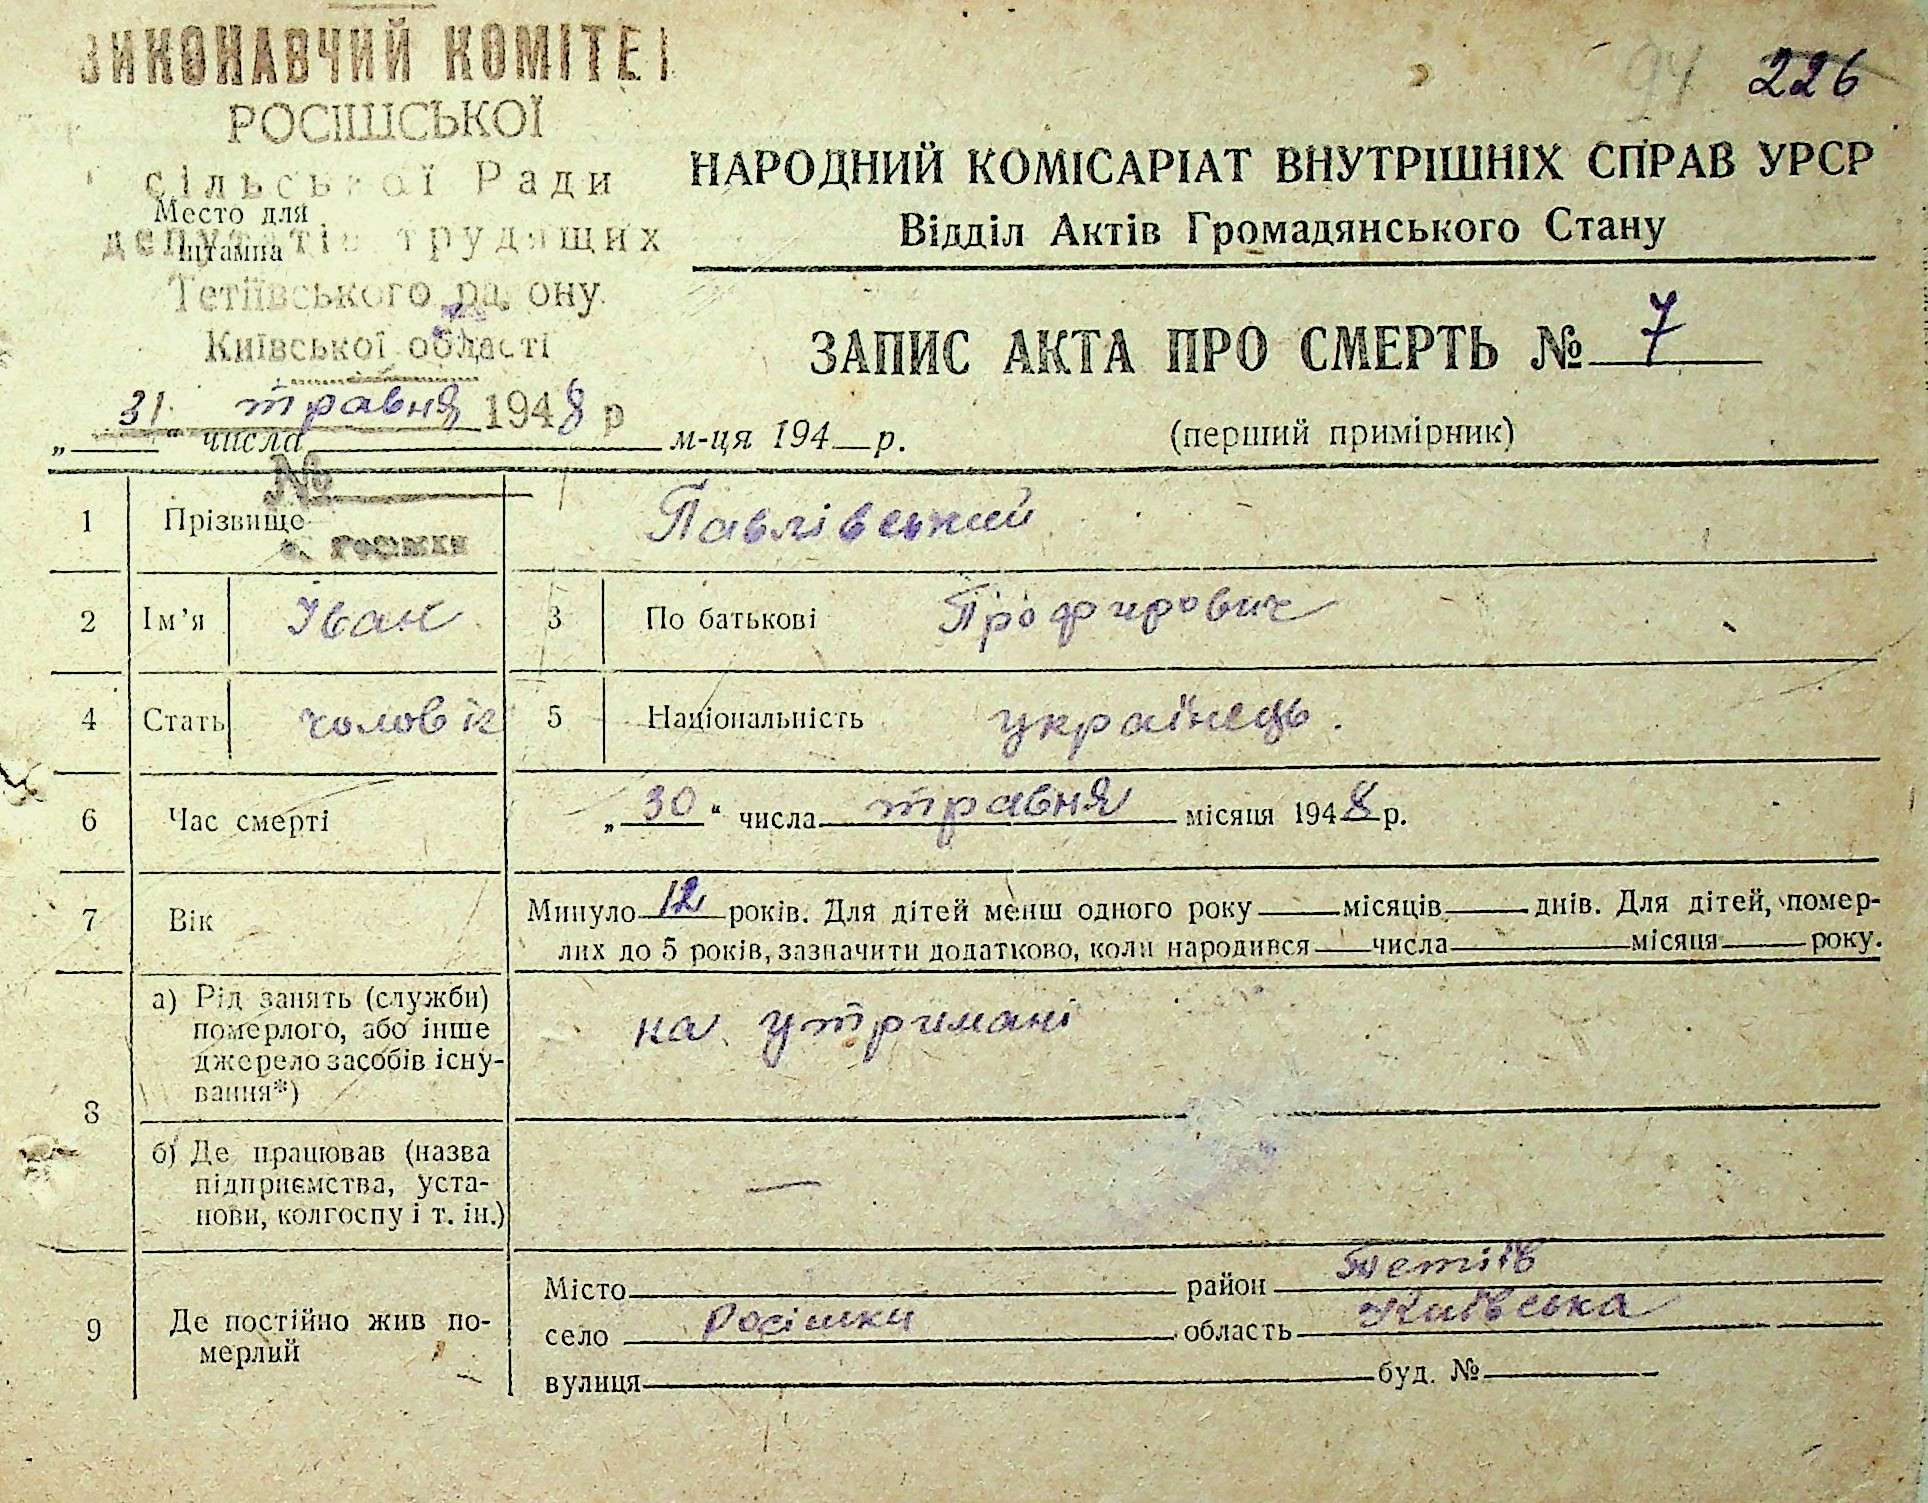 ВИКОНАВЧИЙ КОМІТЕТ
РОСІШСЬКОЇ
сільської Ради
депутатів трудящих
Тетіївського району
Київської області
Место для
штампа
94 226
НАРОДНИЙ КОМІСАРІАТ ВНУТРІШНІХ СПРАВ УРСР
Відділ Актів Громадянського Стану
ЗАПИС АКТА ПРО СМЕРТЬ № 7
(перший примірник)
31 травня 1948 р
„ “ числа м-ця 194 р.
№
с. Росішки
1 Прізвище Павлівський
2 Ім’я Іван 3 По батькові Профирович
4 Стать чоловік 5 Національність українець.
6 Час смерті „30“ числа травня місяця 1948 р.
7 Вік Минуло 12 років. Для дітей менш одного року місяців днів. Для дітей, помер-
лих до 5 років, зазначити додатково, коли народився числа місяця року.
8 а) Рід занять (служби)
померлого, або інше
джерело засобів існу-
вання*)
на утримані
б) Де працював (назва
підприємства, уста-
нови, колгоспу і т. ін.)
—
9 Де постійно жив по-
мерлий
Місто район Тетіїв
село Росішки область Київська
вулиця буд. №